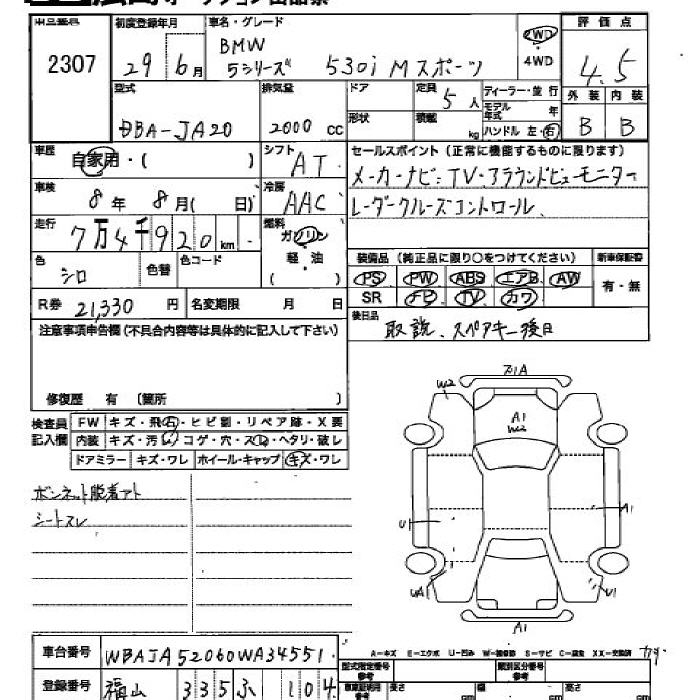 2307
初度登録年月
29年 6月
車名・グレード
BMW
5シリーズ 530i Mスポーツ
2WD
4WD
評価点
4.5
外装 内装
B B
型式
DBA-JA20
排気量
2000 cc
ドア
形状
定員 5人
積載 kg
ディーラー・並行
モデル年式 年
ハンドル 左・右
車歴
自家用・( )
シフト
AT
セールスポイント(正常に機能するものに限ります)
メーカーナビ・TV・アラウンドビューモニター
レーダークルーズコントロール、
車検
8年 8月( 日)
冷房
AAC
走行
7万4千920km
燃料
ガソリン
軽・油
( )
色
シロ
色替
色コード
装備品(純正品に限り○をつけてください)
新車保証書
PS PW ABS エアB AW
SR ナビ TV カワ
有・無
R券 21,330円
名変期限 月 日
後日品
取説、スペアキー後日
注意事項申告欄(不具合内容等は具体的に記入して下さい)
修復歴 有 〔箇所 〕
検査員記入欄
FW キズ・飛石・ヒビ割・リペア跡・X要
内装 キズ・汚レ・コゲ・穴・スレ・ヘタリ・破レ
ドアミラー キズ・ワレ ホイール・キャップ キズ・ワレ
ボンネット脱着アト
シートスレ
W2
A1
W2
A1
U1
UA
U1
A1
A-キズ E-エクボ U-凹み W-補修跡 S-サビ C-腐食 XX-交換済
車台番号
WBAJA52060WA34551
登録番号
福山 335 ふ 104
型式指定番号
参考
類別区分番号
参考
長さ cm
幅 cm
高さ cm